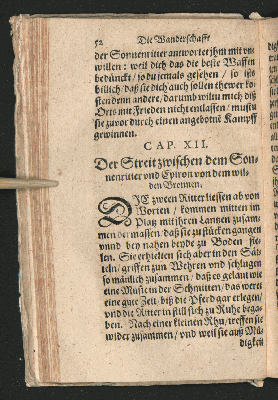 52 Die Wanderschafft
der Sonnenritter antwortet jhm mit vn-
willen: weil dich das die beste Waffen
bedünckt / so du jemals gesehen / so ists
billich / daß sie dich auch sollen thewer ko-
sten denn andere / darumb wiltu mich diß
Orts mit Frieden nicht entlassen / mustu
sie zuvor durch einen angebotnē Kampff
gewinnen.
CAP. XII.
Der Streit zwischen dem Son-
nenritter vnd Epiron von dem wil-
den Brennen.
DIE zween Ritter liessen ab von
Worten / kommen mitten im
Platz mit ihren Lantzen zusam-
men dermassen / daß sie zu stücken gangen
vnnd bey nahen beyde zu Boden fie-
len. Sie erhielten sich aber in den Sät-
teln / griffen zum Wehren vnd schlugen
so mänlich zusammen / daß es gelaut wie
eine Musie in der Schmitten / das weret
eine gute Zeit / biß die Pferd gar erlegen /
vnd die Ritter in still sich zu Ruhe bega-
ben. Nach einer kleinen Rhu / treffen sie
wider zusammen / vnd weil sie auß Mü-
digkeit